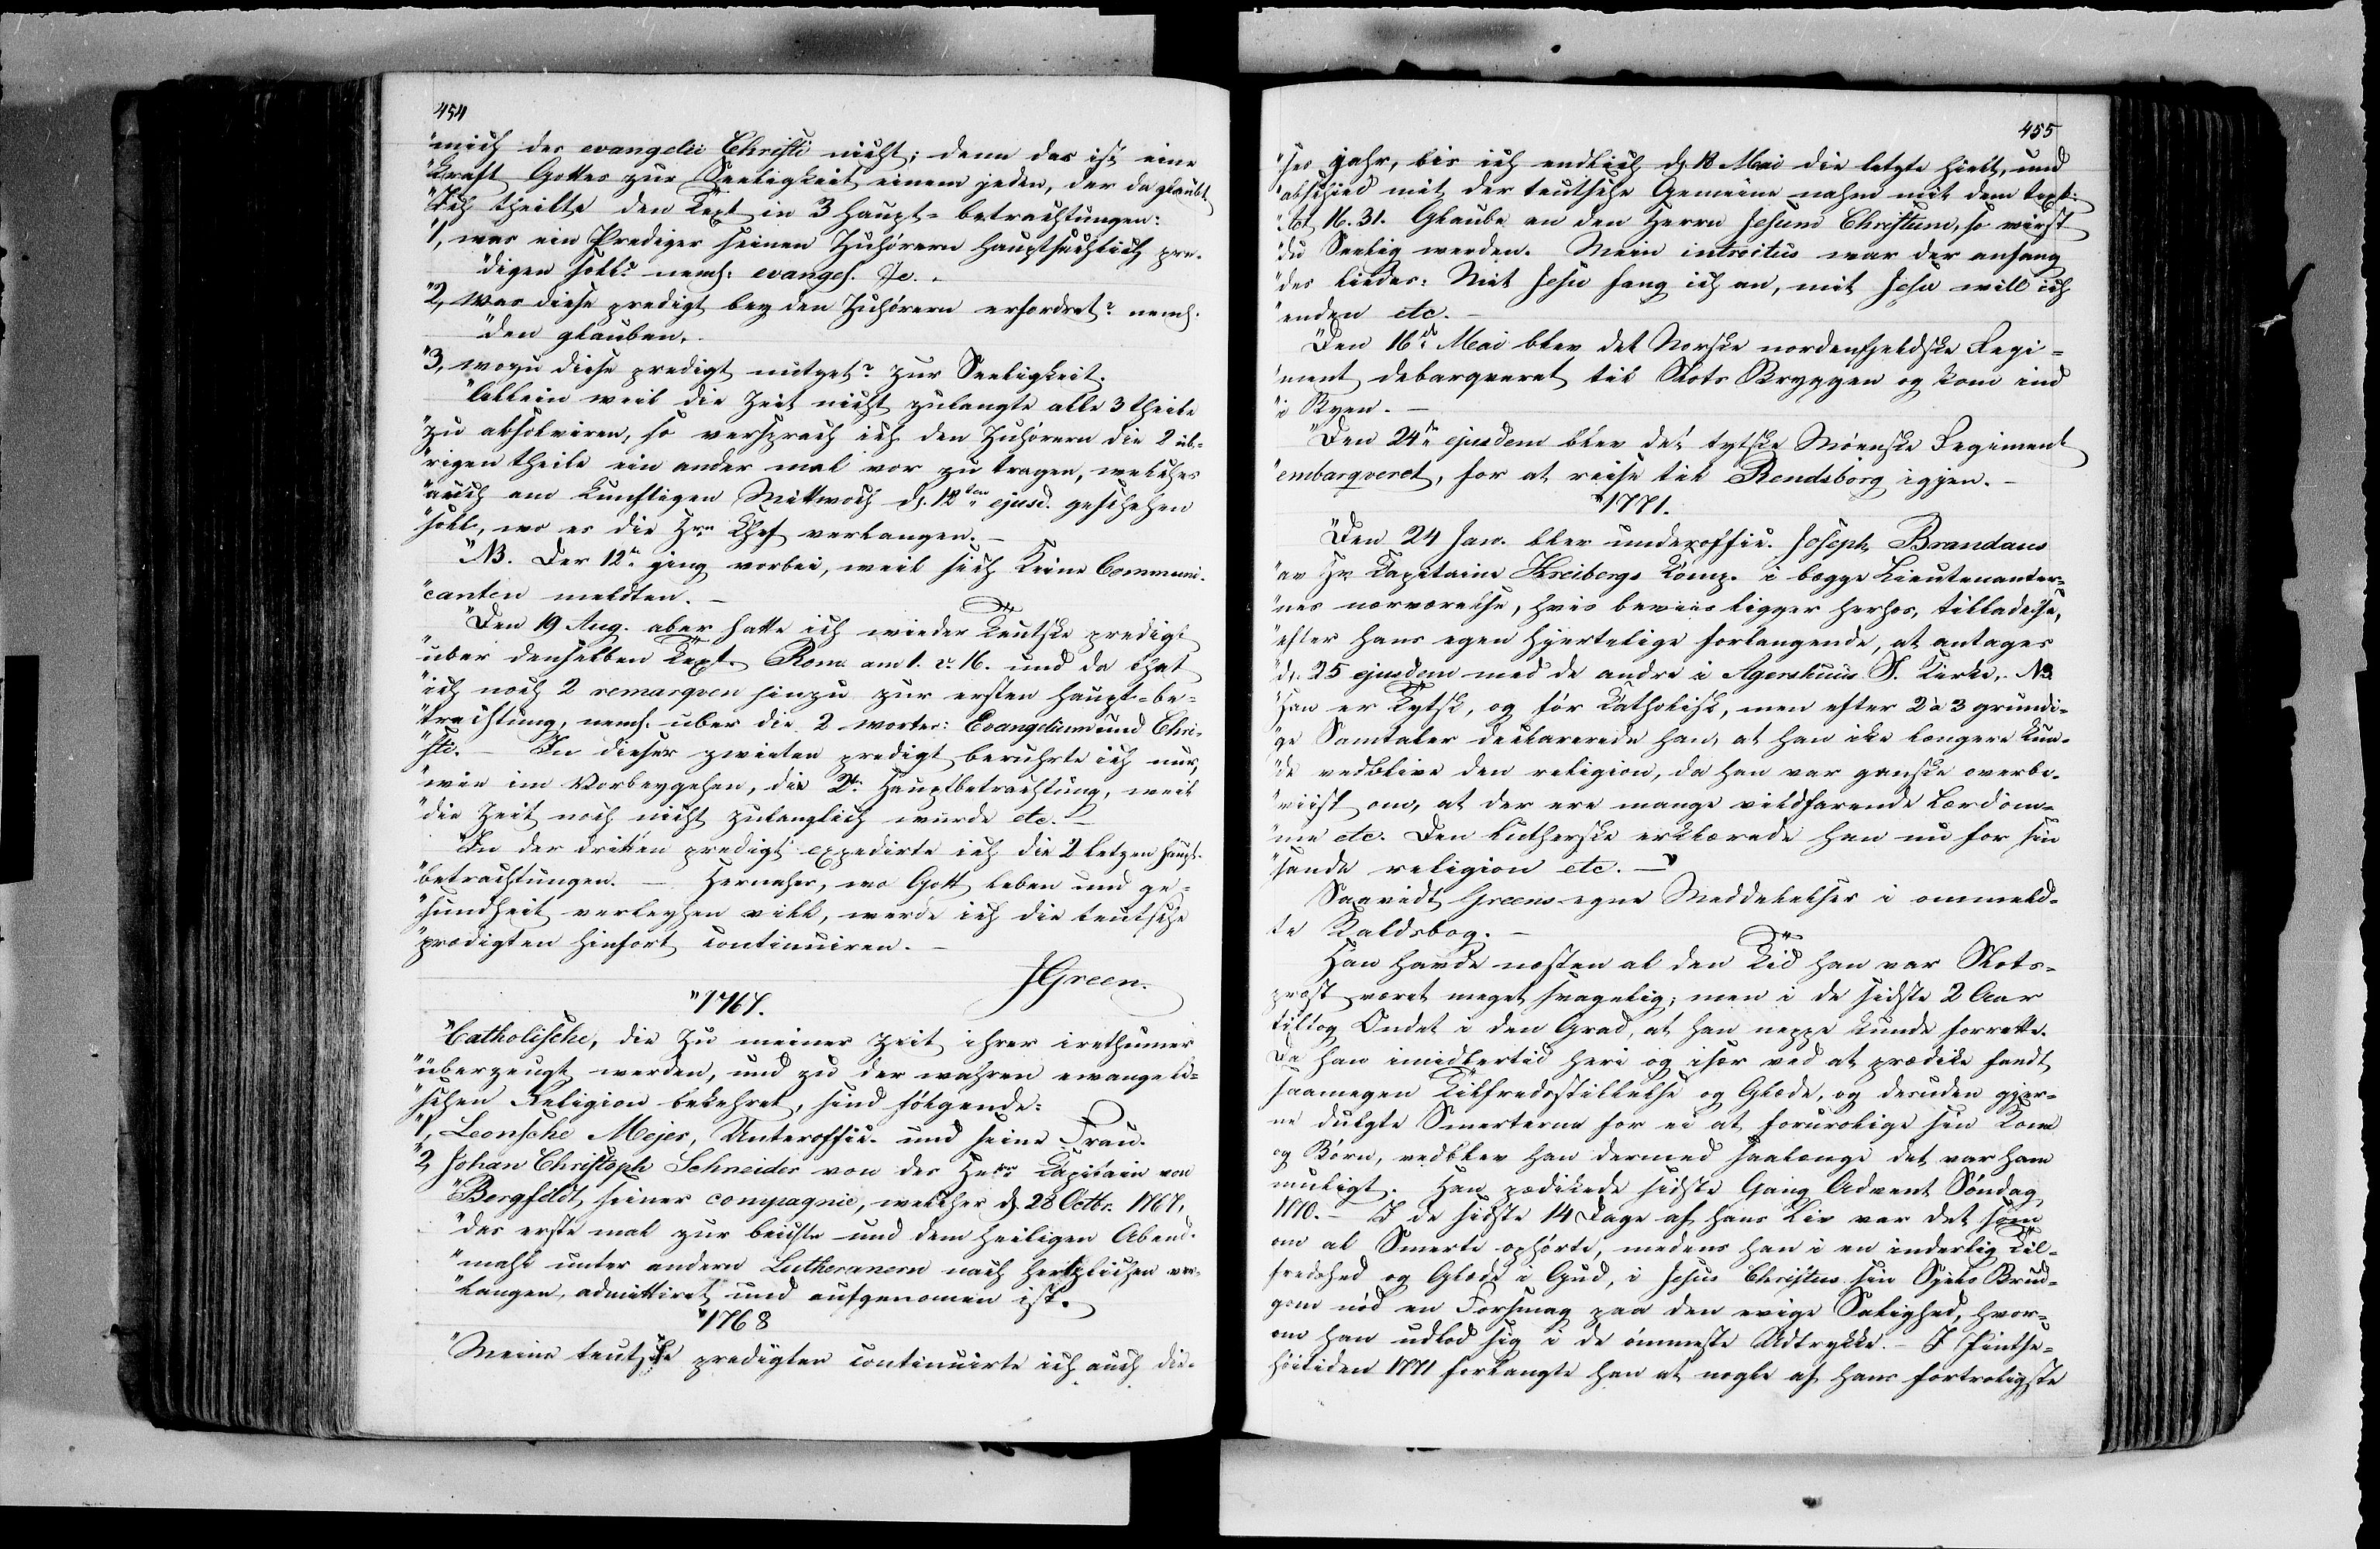 454
"mich des evangelii Christi nicht; denn das ist eine
"Kraft Gottes zur Seeligkeit einem jeden, der da glaubt
"Ich theilte den Text in 3 Haupt-betrachtungen:
"1, was ein Prediger seinen Zuhörern hauptsächlich pre-
"digen soll? neml: evangel.
"2, Was diese predigt bey den Zuhörern erfordret? neml.
"den glauben.
"3, wozu diese predigt nützet? zur Seeligkeit.
"allein weil die Zeit nicht zulangte alle 3 theile
"zu absolviren, so versprach ich den Zuhörern die 2 üb-
"rigen theile ein ander mal vor zu tragen, welches
"auch am künftigen Mittwoch d. 12ten ejusd. geschehen
"soll, wo es die Hrn Chef verlangen. –
"NB. Der 12te ging vorbei, weil sich keine Communi-
"canten meldten. –
"Den 19 Aug. aber hatte ich wieder teutske predigt
"über denselben Text Rom am 1. v. 16. und da that
"ich noch 2 remarqven hinzu zur ersten Haupt-be-
"trachtung, neml. über die 2 worter: Evangelium und Chri-
"sti. – In dieser zweiten predigt berührte ich nur,
"wie im Vorbeygehen, die 2t Hauptbetrachtung, weil
"die Zeit noch nicht zulanglich wurde etc. –
"In der dritten predigt expedirte ich die 2 letzen Haupt-
"betrachtungen. – Hernacher, wo Gott leben und ge-
"sundheit verleyhen will, werde ich die teutsche
"prædigten hinfort continuiren. –
JGreen.
"1767.
"Catholische, die zu meiner Zeit ihrer irethumer
"überzeugt werden, und zu der wahren evangeli-
"schen Religion bekehret, sind fölgende:
"1, Leonsche Mejer, Unteroffic. und seine Frau.
"2, Johan Christoph Schneider von der Herr Capitain von
"Bergfeldt seiner compagnie, welcher d. 28 Octbr. 1767,
"das erste mal zur beichte und dem heiligen Abend-
"mahl unter andern Lutheranern nach hertzlichen ver-
"langen, admittiret und aufgenomen ist.
"1768
"Meine teutsche predigten continuirte ich auch die-
455
"ses jahr, bis ich endlich d. 18 Mai die letzte hielt, und
"abschied mit der teutsche Gemeine nahm mit dem text.
"Act. 16. 31. Glaube an den Herrn Jesum Christum, so wirst
"du Seelig werden. Mein introitus war der anfang
"des liedes: Mit Jesu fang ich an, mit Jesu will ich
"enden etc. –
"Den 16de Mai blev det Norske nordenfjeldske Regi-
"ment debarqveret til Slots Bryggen og kom ind
"i Byen. –
"Den 24de ejusdem blev det tytske Møenske Regiment
"embarqveret, for at reise til Rendsborg igjen. –
"1771.
"Den 24 Jan. blev underoffic. Joseph Brandaus
"av Hr Capitaine Kreibergs Comp. i begge Lieutenanter-
"nes nærværelse, hvis beviis ligger herhos, tilladelse,
"efter hans egen hjertelige forlangende, at antages
"d. 25 ejusdem med de andre i Agershuus S. Kirke. NB.
"Han er Tytsk, og før Katholisk, men efter 2 à 3 grundi-
"ge Samtaler declarerede han, at han ikke længere kun-
"de vedblive den religion, da han var ganske overbe-
"viist om, at der ere mange vildfarende Lærdom-
"me etc. Den Lutherske erklærede han nu for sin
"sande religion etc. – "
Saavidt Greens egne Meddelelser i ommeld-
te Kaldsbog. –
Han havde næsten al den Tid han var Slots-
præst været meget svagelig; men i de sidste 2 Aar
tiltog Ondet i den Grad, at han neppe kunde forrette.
Da han imidlertid heri og især ved at prædike fandt
saamegen Tilfredsstillelse og Glæde, og desuden gjer-
ne dulgte Smerterne for ei at forurolige sin Kone
og Børn, vedblev han dermed saalænge det var ham
muligt. Han prædikede sidste Gang Advent Søndag
1770. – I de sidste 14 Dage af hans Liv var det som
om al Smerte ophørte, medens han i en inderlig Til-
fredshed og Glæde i Gud, i Jesus Christus sin Sjels Brud-
gom nød en Forsmag paa den evige Salighed, hvor-
om han udlod sig i de ømmeste Udtrykke. – I Pintse-
høitiden 1771 forlangte han at nogle af hans fortroligste